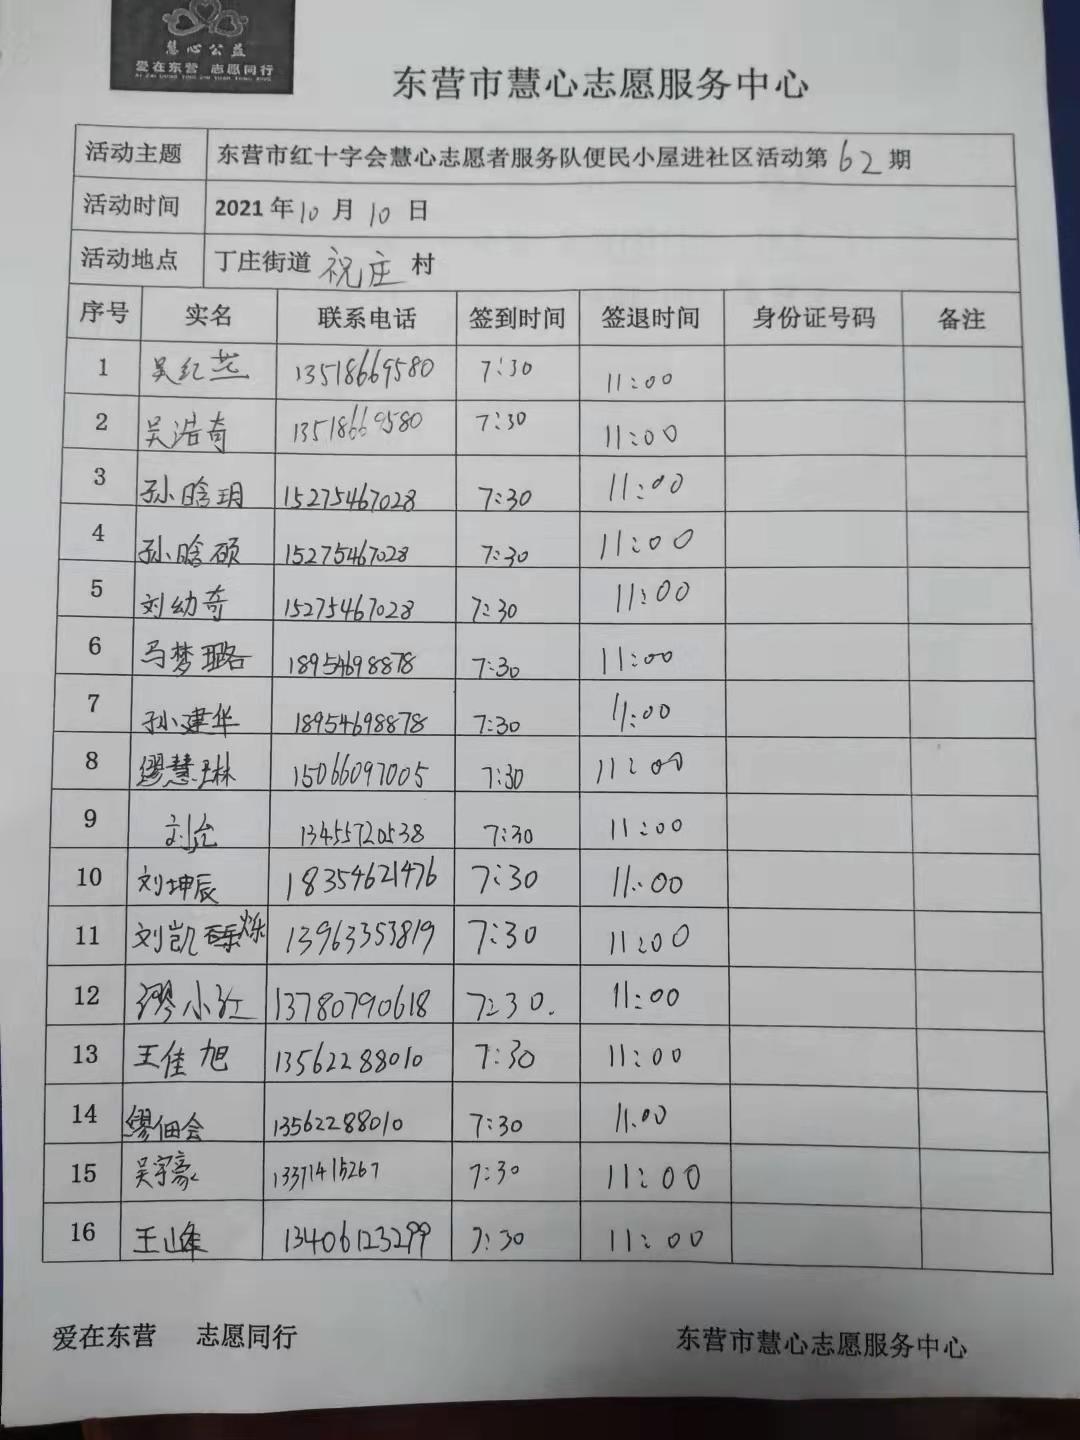 慧心公益
爱在东营 志愿同行
东营市慧心志愿服务中心
活动主题 东营市红十字会慧心志愿者服务队便民小屋进社区活动第62期
活动时间 2021年10月10日
活动地点 丁庄街道祝庄村
序号 实名 联系电话 签到时间 签退时间 身份证号码 备注
1 吴红芸 13518669580 7:30 11:00
2 吴浩奇 13518669580 7:30 11:00
3 孙晗玥 15275467028 7:30 11:00
4 孙晗硕 15275467028 7:30 11:00
5 刘幼奇 15275467028 7:30 11:00
6 马梦璐 18954698878 7:30 11:00
7 孙建华 18954698878 7:30 11:00
8 缪慧琳 15066097005 7:30 11:00
9 刘 13455720538 7:30 11:00
10 刘坤辰 18354621476 7:30 11:00
11 刘凯烁 13963353819 7:30 11:00
12 缪小红 13780790618 7:30. 11:00
13 王佳旭 13562288010 7:30 11:00
14 缪佃会 13562288010 7:30 11.00
15 吴宇豪 13371415267 7:30 11:00
16 王峰 13406123299 7:30 11:00
爱在东营 志愿同行
东营市慧心志愿服务中心